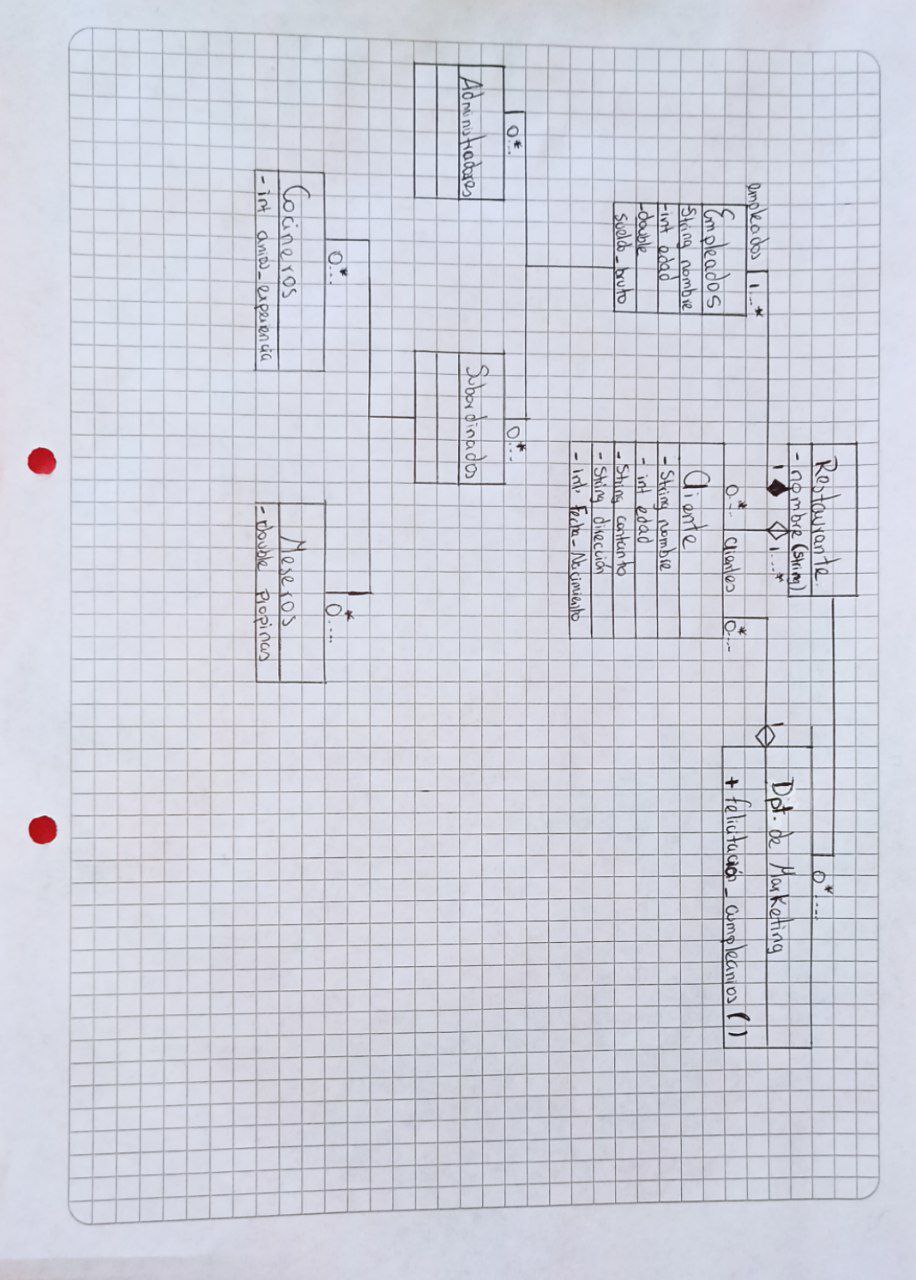 Restaurante
- nombre (String)
1
1...*
0*....
Dpt. de Marketing
+ felicitación_cumpleanios ()
1
empleados
1...*
Empleados
String nombre
-int edad
-double
sueldo_bruto
0*..
clientes
0*...
Cliente
- String nombre
- int edad
- String contanto
- String dirección
- int Fecha_Nacimiento
0*..
Administradores
0*...
Subordinados
0*...
Cocineros
- int anios_experiencia
0*....
Meseros
- double propinas